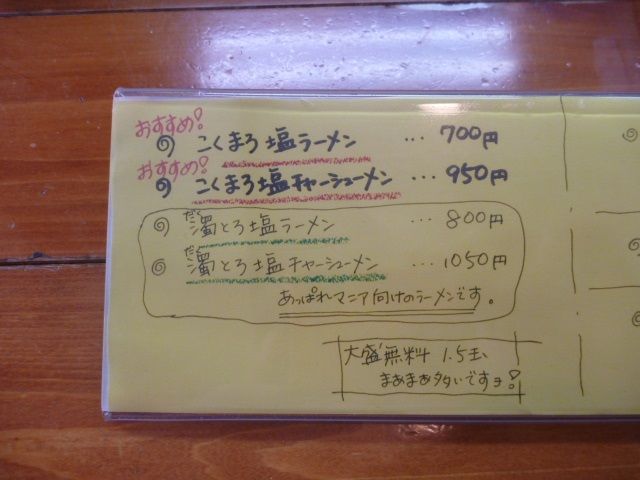 おすすめ!
こくまろ塩ラーメン … 700円
おすすめ!
こくまろ塩チャーシューメン … 950円
だく
濁とろ塩ラーメン … 800円
だく
濁とろ塩チャーシューメン … 1050円
あっぱれマニア向けのラーメンです。
大盛無料 1.5玉、
まあまあ多いですョ!